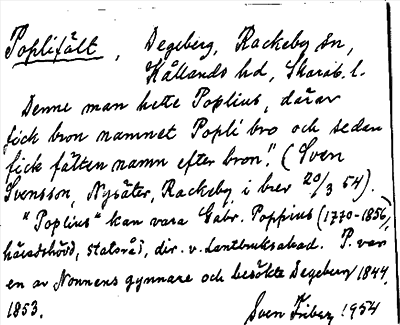 Poplifält, Degeberg, Rackeby sn,
Kållands hd, Skarab. l.
Denne man hette Poplius, därav
fick bron namnet Popli bro och sedan
fick fälten namn efter bron." (Sven
Svensson, Nysäter, Rackeby, i brev 20/3 54).
"Poplius" kan vara Gabr. Poppius (1770-1856),
häradshövd, statsråd, dir. v. Lantbruksakad. P. var
en av Nonnens gynnare och besökte Degeberg 1844,
1853.
Sven Fiberg 1954